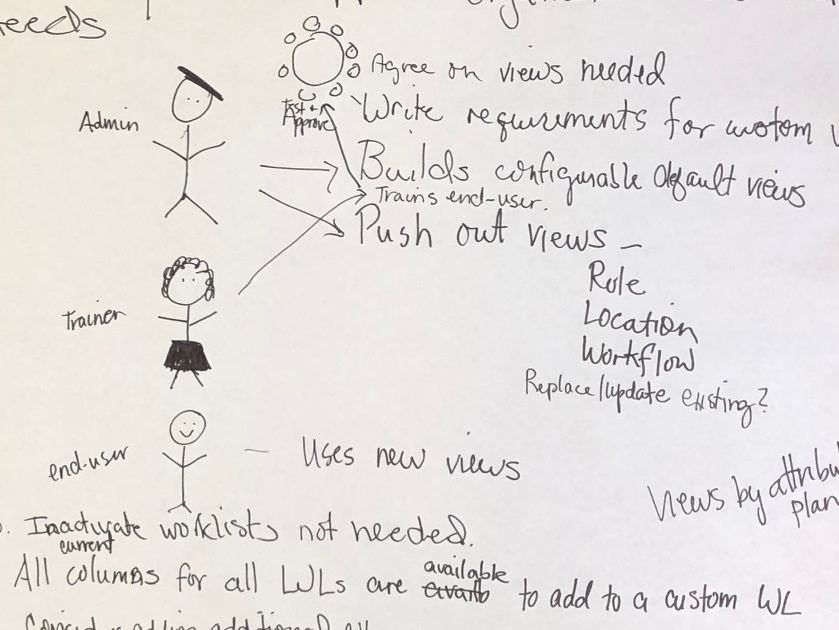 Agree on views needed
Admin
Test +
Approve
Write requirements for custom
Builds configurable default views
Trains end-user.
Push out views –
Role
Location
Trainer
Workflow
Replace/update existing?
end-user
– Uses new views
Views by
plan
Inactivate worklists not needed.
current
All columns for all WLs are available to add to a custom WL